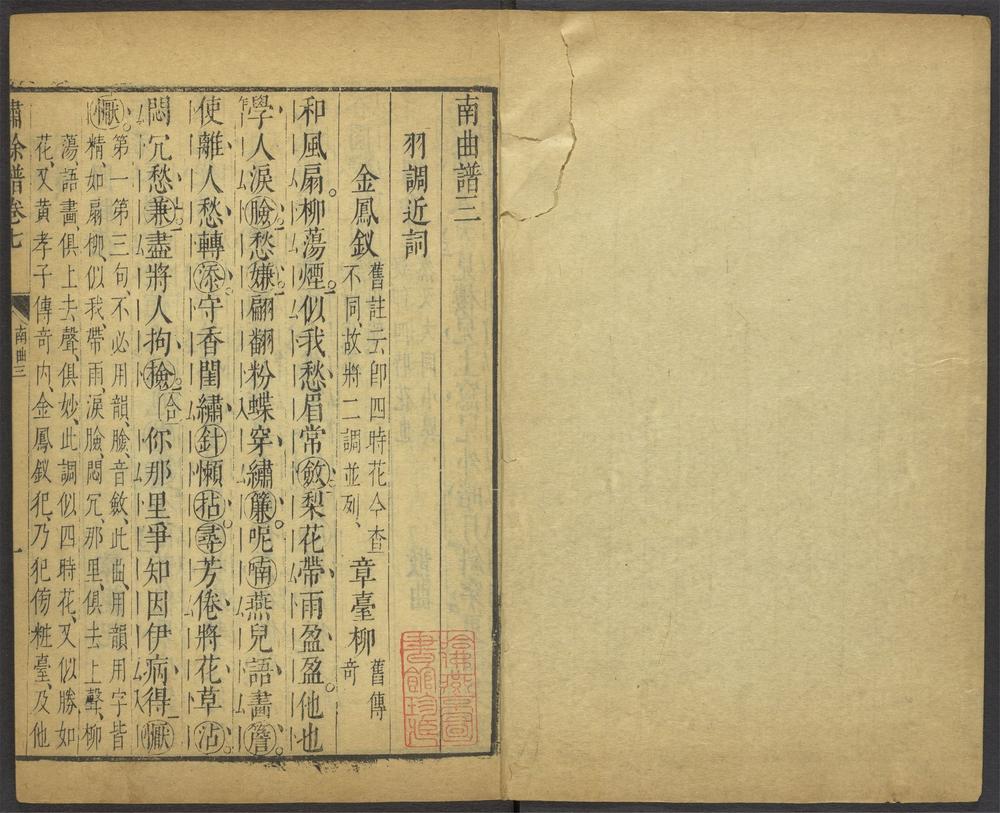 南曲譜三
羽調近詞
金鳳釵 舊註云卽四時花今查不同、故將二調並列、 章臺柳 舊傳奇
和風扇。柳蕩煙。似我愁眉常斂梨花帶雨盈盈。他也
學人淚臉愁嫌。翩翻粉蝶穿繡簾。呢喃燕兒語畵簷。
使離人愁轉添。守香閨繡針懶拈。尋芳倦將花草沾。
悶冗愁兼。盡將人拘檢。合你那里爭知因伊病得懨
懨。第一第三句、不必用韻、臉、音斂、此曲、用韻用字皆
精、如扇柳、似我、帶雨、淚臉、悶冗、那里、俱去上聲、柳
蕩、語畵、俱上去聲、俱妙、此調似四時花、又似勝如
花、又黃孝子傳奇內、金鳳釵犯、乃犯傍粧臺、及他
嘯餘譜卷七
南曲三
一